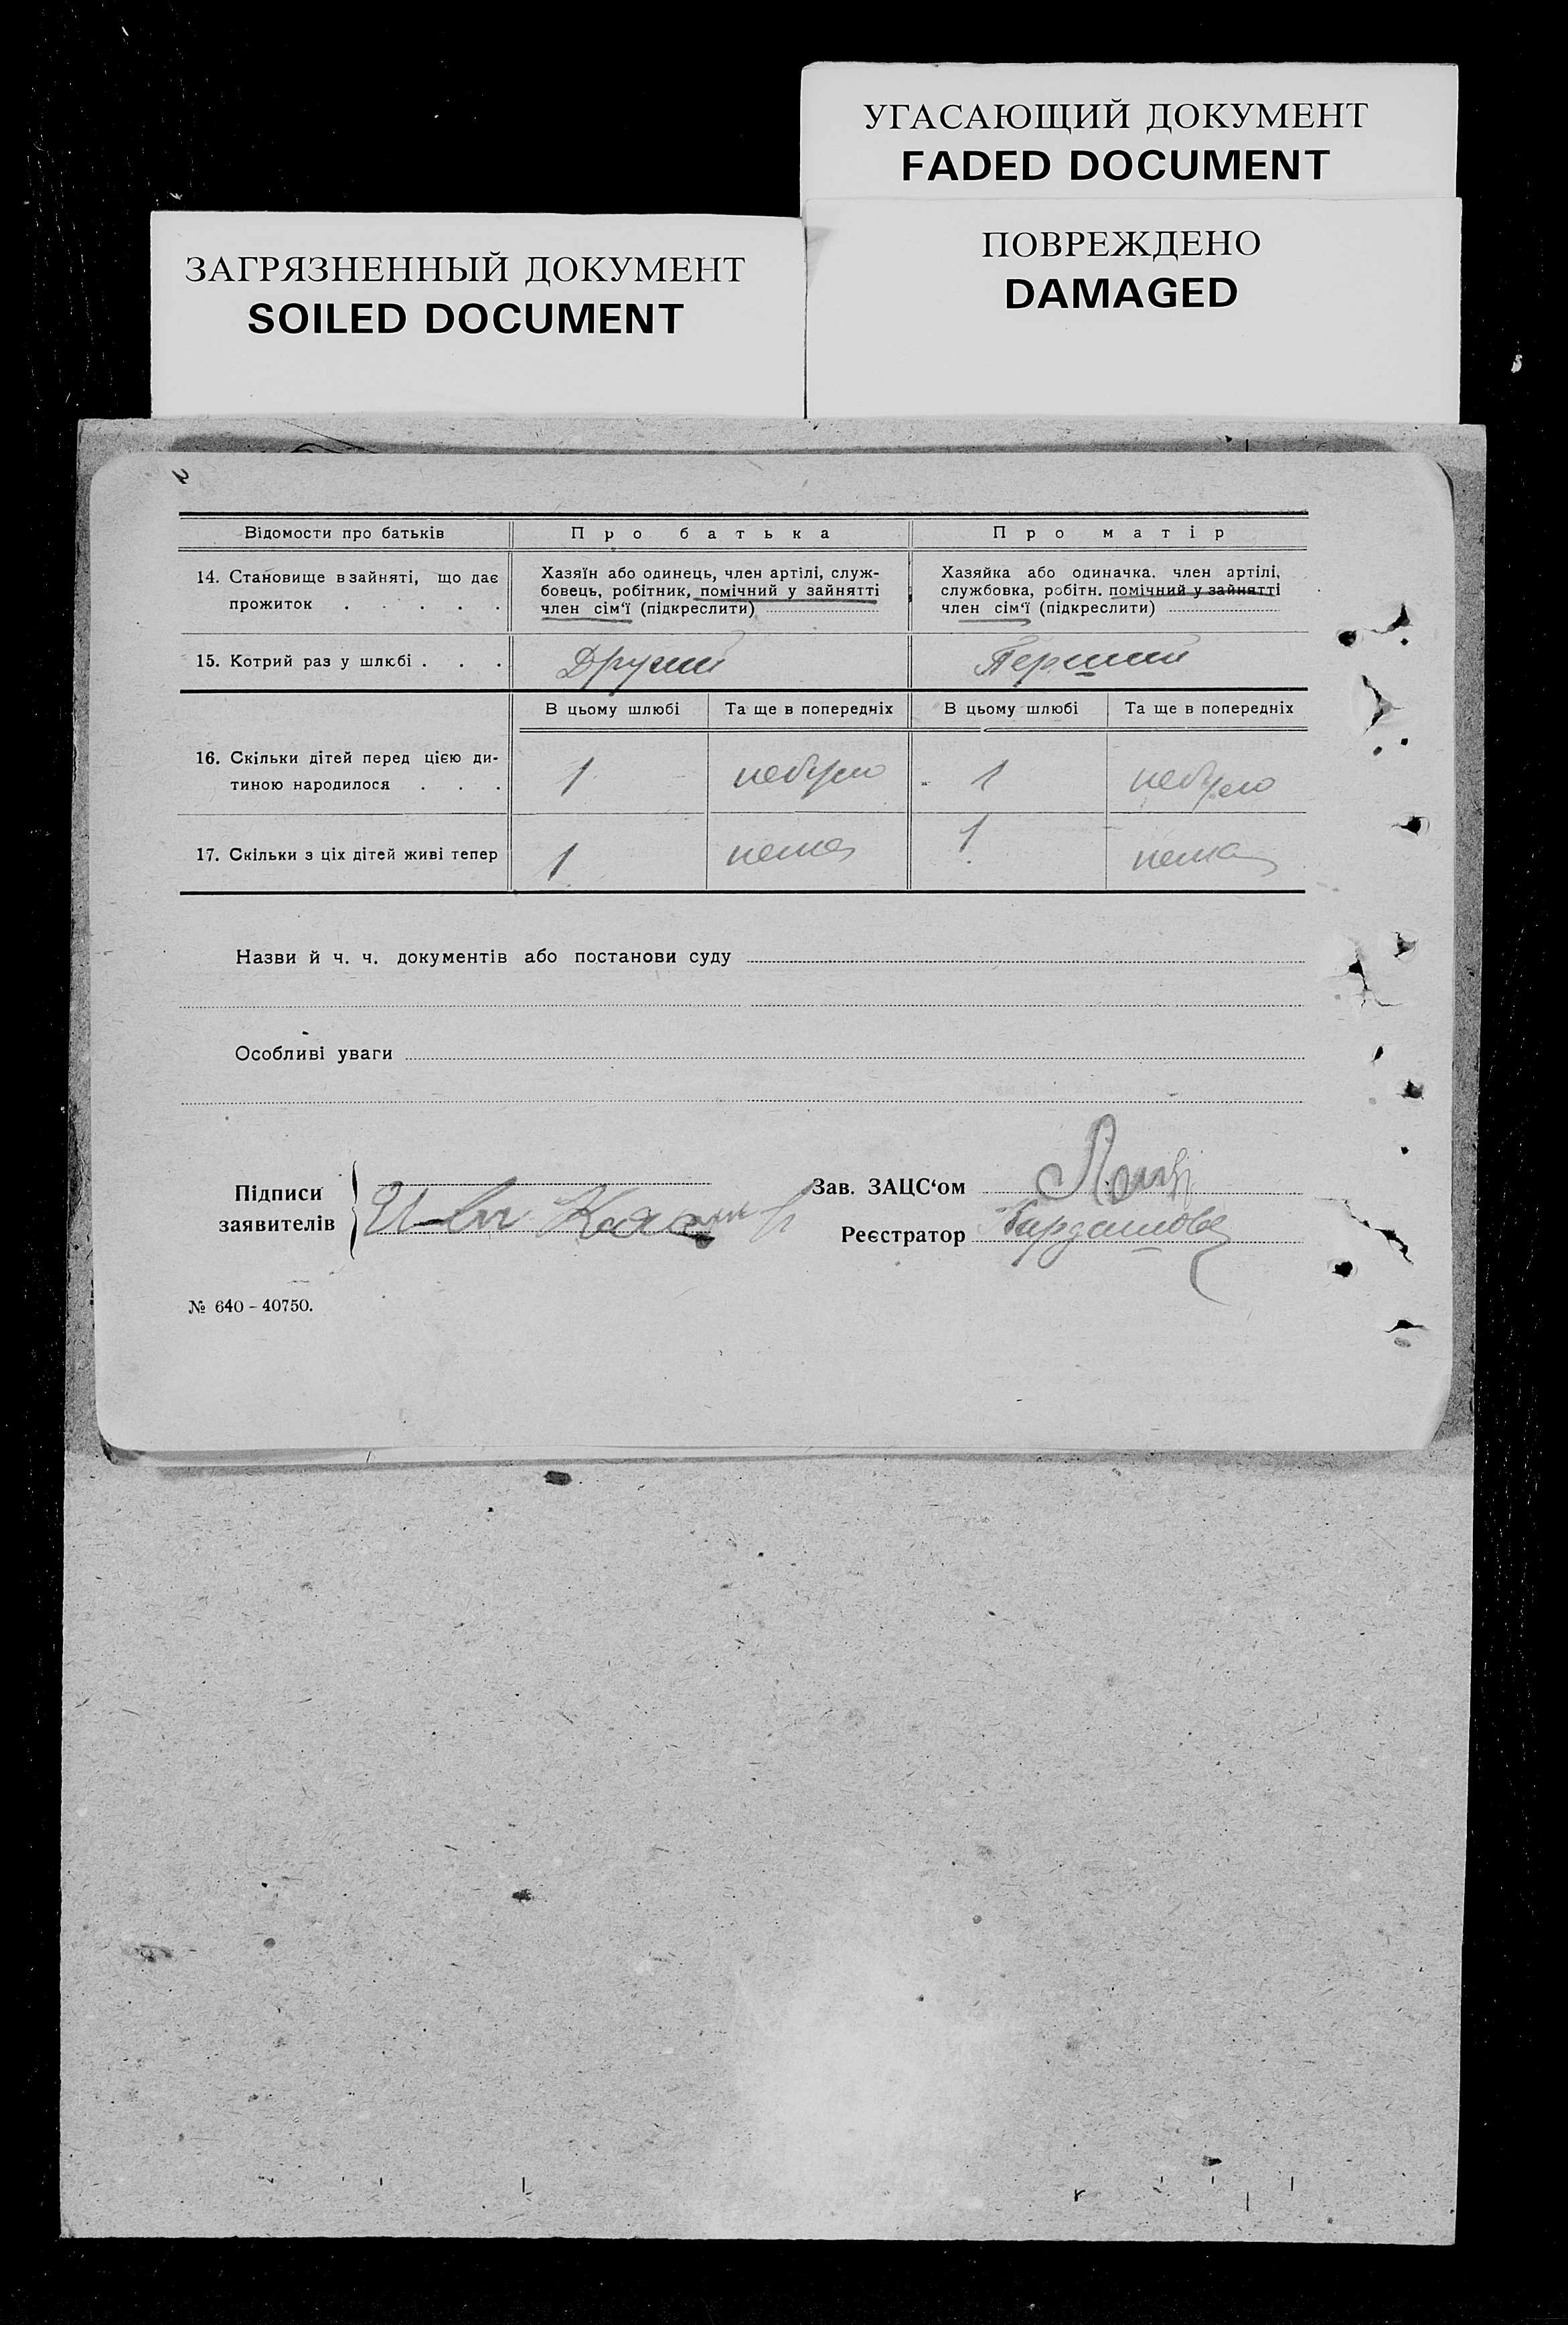 УГАСАЮЩИЙ ДОКУМЕНТ
FADED DOCUMENT
ПОВРЕЖДЕНО
DAMAGED
ЗАГРЯЗНЕННЫЙ ДОКУМЕНТ
SOILED DOCUMENT
Відомости про батьків
Про батька
Про матір
14. Становище в зайняті, що дає
прожиток . . . . .
Хазяїн або одинець, член артілі, служ-
бовець, робітник, помічний у зайнятті
член сім‘ї (підкреслити)
Хазяйка або одиначка. член артілі,
службовка, робітн. помічний у зайнятті
член сім‘ї (підкреслити)
15. Котрий раз у шлюбі . . .
Другий
Перший
В цьому шлюбі
Та ще в попередніх
В цьому шлюбі
Та ще в попередніх
16. Скільки дітей перед цією ди-
тиною народилося . . .
1
небуло
1
небуло
17. Скільки з ціх дітей живі тепер
1
нема
1
нема
Назви й ч. ч. документів або постанови суду
Особливі уваги
Підписи
заявителів
Зав. ЗАЦС‘ом
Реєстратор
№ 640 - 40750.